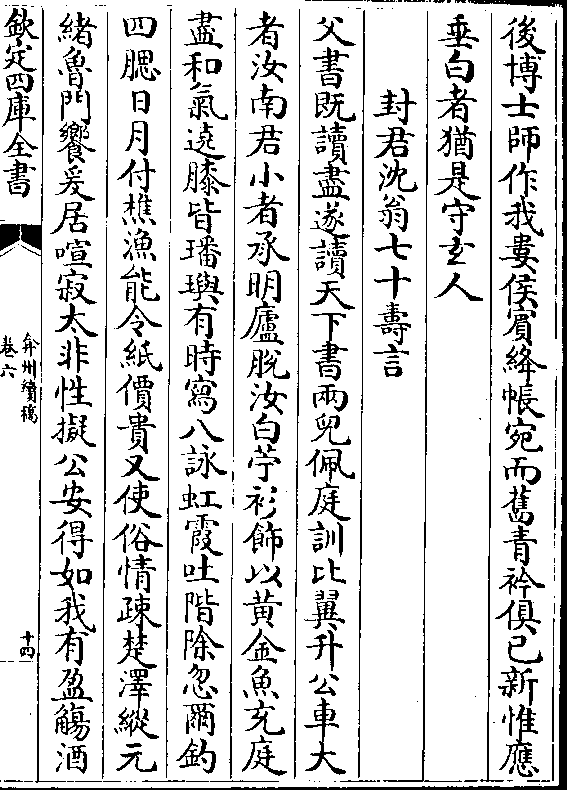 後博士師作我婁侯賓絳帳宛而舊青衿俱已新惟應
垂白者猶是守玄人
封君沈翁七十壽言
父書既讀盡遂讀天下書兩兒佩庭訓比翼升公車大
者汝南君小者承明廬脫汝白苧衫飾以黃金魚充庭
盡和氣遶膝皆璠璵有時寫八詠虹霞吐階除忽爾釣
四腮日月付樵漁能令紙價貴又使俗情疎楚澤縱元
緒魯門饗爰居喧寂太非性擬公安得如我有盈觴酒
欽定四庫全書
弇州續稿
卷六
十四